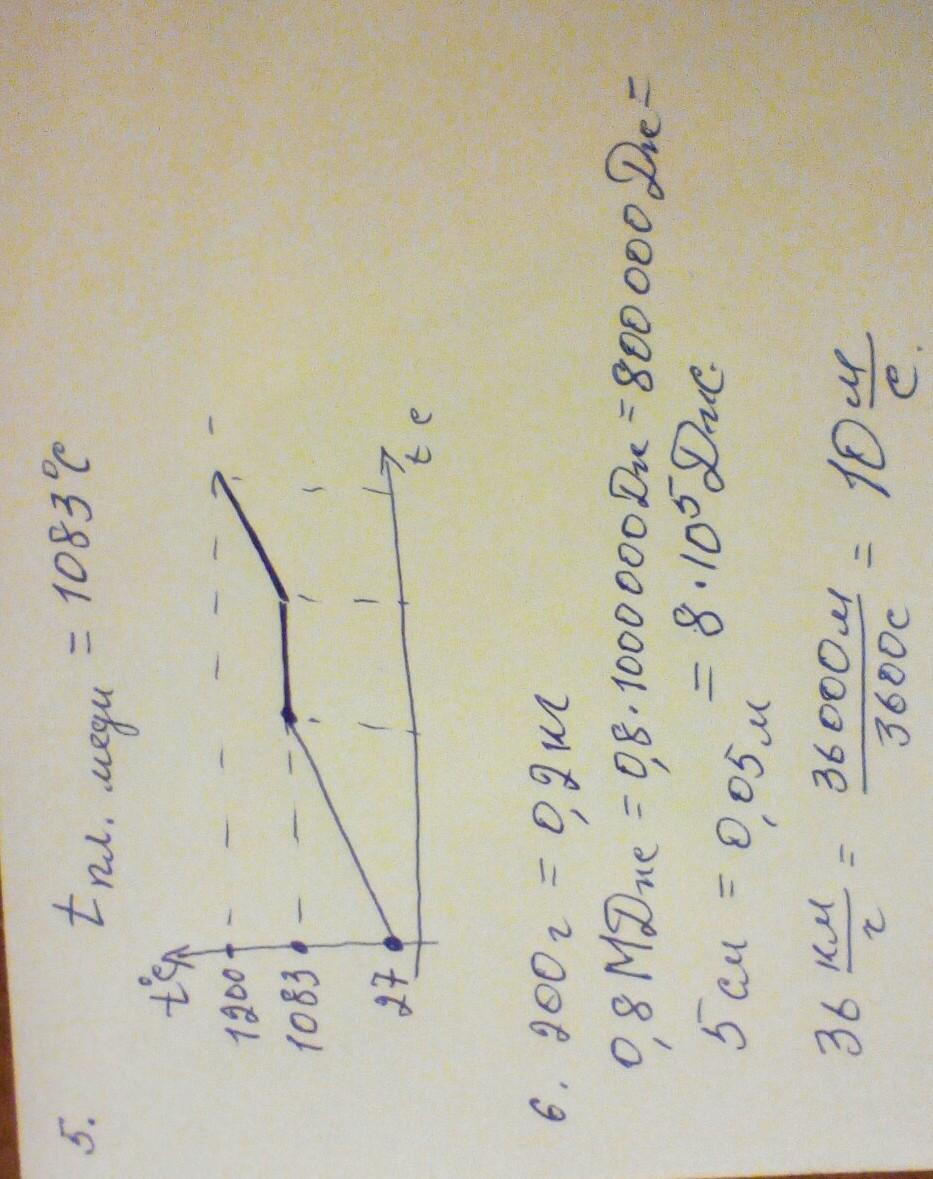 5.
t пл. меди = 1083°C
t°C
1200
1083
27
t c
6. 200 г = 0,2 кг
0,8 МДж = 0,8 · 1000 000 Дж = 800 000 Дж =
= 8 · 10⁵ Дж.
5 см = 0,05 м
36 км/г = 36000 м/3600 с = 10 м/с.